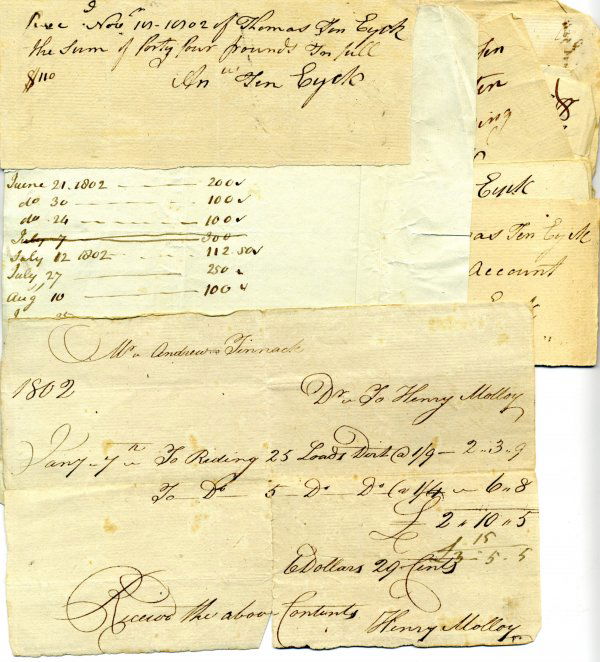 Rec^d Nov^r 10-1802 of Thomas Ten Eyck
the sum of forty four pounds In full
$110 An^w Ten Eyck
June 21. 1802 200
do 30 100
do 24 100
July 7 300
July 12 1802 112.50
July 27 250
Aug 10 100
Ten
Ten
ing
Eyck
as Ten Eyck
Account
Mr Andrew Tinnack
1802 Dr To Henry Molloy
Jany 7th To Riding 25 Loads Dirt @ 1/9 - 2..3..9
To Do 5 Do Do @ 1/4 6..8
£ 2..10..5
15
£3-5-5
6 Dollars 29 Cents
Received the above Contents
Henry Molloy